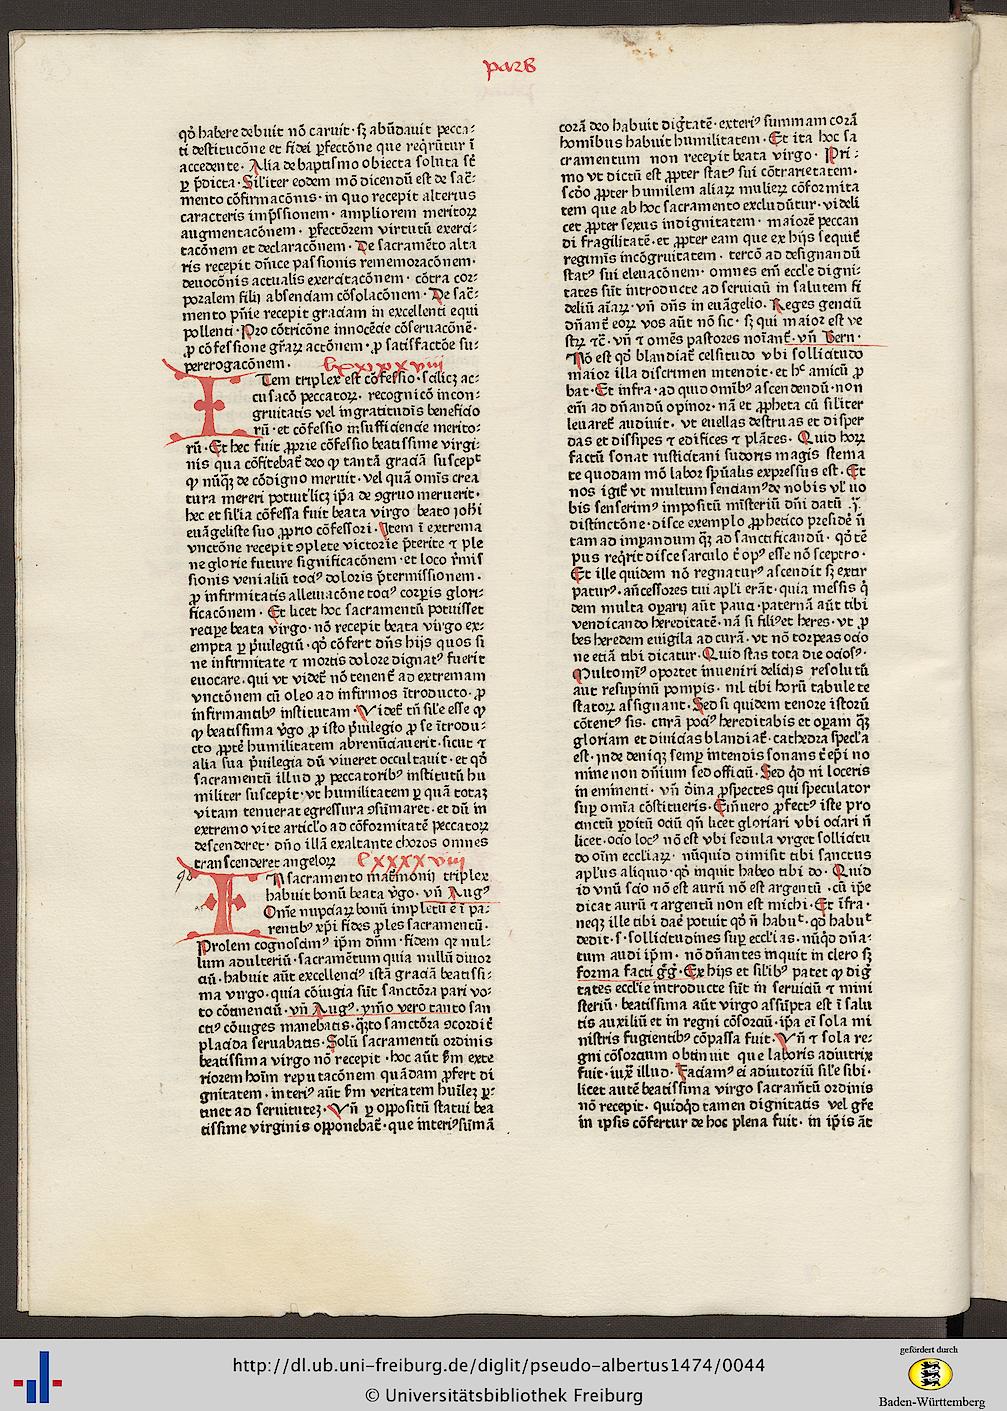 pars
qđ habere debuit nō caruit· sꝫ abūdauit pecca⸗
ti destitucōne et fidei ꝑfectōne que reqͥrūtur ī
accedente· Alia de baptismo obiecta soluta sēt
ꝑ p̄dicta· Sil'iter eodem mō dicendū est de sac̄⸗
mento cōfirmacōnis· in quo recepit alterius
caracteris imp̄ssionem· ampliorem meritoꝝ
augmentacōnem· ꝑfectōrem virtutū exerci⸗
tacōnem et declaracōnem· De sacramēto alta
ris recepit dn̄ice passionis rememoracōnem·
deuocōnis actualis exercitacōnem· cōtra cor⸗
poralem filij absenciam cōsolacōnem· De sac̄⸗
mento pn̄ie recepit graciam in excellenti equi
pollenti· Pro cōtricōne innocēcie cōseruacōnē·
ꝓ cōfessione gr̄aꝝ actōnem· ꝓ satisfactōe su⸗
pererogacōnem· lxxxxviii
ITem triplex est cōfessio· scilicꝫ ac⸗
cusacō peccatoꝝ· recognicō incon⸗
gruitatis vel ingratitudis beneficio
rū· et cōfessio insufficiencie merito⸗
rū· Et hec fuit ꝓprie cōfessio beatissime virgi⸗
nis qua cōfitebat̄ deo ꝙ tantā graciā suscepͭ
ꝙ nūqꝫ de cōdigno meruit· vel quā om̄is crea
tura mereri potuit· licꝫ ip̄a de ꝯgruo meruerit·
hec et sil'ia cōfessa fuit beata virgo beato johi
euāgeliste suo ꝓprio cōfessori· Item ī extrema
vnctōne recepit ꝯplete victorie p̄terite ⁊ ple
ne glorie future significacōnem· et loco r̄mis
sionis venialiū tociꝰ doloris p̄termissionem·
ꝓ infirmitatis alleuiacōne tociꝰ corpis glori⸗
ficacōnem· Et licet hoc sacramentū potuisset
recipe beata virgo· nō recepit beata virgo ex⸗
empta ꝑ p̄uilegiū· qđ cōfert dn̄s hijs quos si
ne infirmitate ⁊ mortis dolore dignatꝰ fuerit
euocare· qui vt videt̄ nō tenent̄ ad extremam
vnctōnem cū oleo ad infirmos ītroducto· ꝓ
infirmantibꝰ institutam· Videt̄ tn̄ sil'e esse ꝙ
ꝙ beatissima v̄go ꝓ isto p̄uilegio ꝓ se ītrodu⸗
cto ꝓpter̄ humilitatem abrenūciauerit· sicut ⁊
alia sua p̄uilegia dū viueret occultauit· et qđ
sacramentū illud ꝓ peccatoribꝰ institutū hu
militer suscepit· vt humilitatem ꝑ quā totaꝫ
vitam tenuerat egressura ꝯsūmaret· et dū in
extremo vite articl'o ad cōformitatē peccatoꝝ
descenderet· dn̄o illā exaltante choros omnes
transcenderet angeloꝝ lxxxxviiii
98
IN sacramento matīmonij triplex
habuit bonū beata v̄go· vn̄ Augꝰ
Om̄e nupciaꝝ bonū impletū ē ī pa⸗
rentibꝰ xp̄i fides ꝓles sacramentū·
Prolem cognoscimꝰ ip̄m dn̄m· fidem qꝛ nul⸗
lum adulteriū· sacramētum quia nullū diuor
ciū· habuit aūt excellenciꝰ istā graciā beatissi⸗
ma virgo· quia cōiugia sūt sanctōra pari vo⸗
to cōtinenciū· vn̄ Augꝰ· ymo vero tanto san
ctiꝰ cōiuges manebatis· q̄to sanctōra ꝯcordit̄
placida seruabatis· Solū sacramentū ordinis
beatissima virgo nō recepit· hoc aūt s̄m exte
riorem hoīm reputacōnem quādam ꝓfert di
gnitatem· interiꝰ aūt s̄m veritatem huīleꝫ ꝑ⸗
tinet ad seruituteꝫ· Vn̄ ꝑ oppositū statui bea
tissime virginis opponebat̄· que interiꝰ sūmā
corā deo habuit dig̊tatē· exteriꝰ summam corā
hominibus habuit humilitatem· Et ita hoc sa
cramentum non recepit beata virgo· Pri⸗
mo vt dictū est ꝓpter statꝰ sui cōtrarietatem·
scđo ꝓpter humilem aliaꝝ mulieꝝ cōformita
tem que ab hoc sacramento excludūtur· videli
cet ꝓpter sexus indignitatem· maiorē peccan
di fragilitatē· et ꝓpter eam que ex hijs sequit̄
regiminis incōgruitatem· tercō ad designandū
statꝰ sui eleuacōnem· omnes em̄ eccl'e digni⸗
tates sūt introducte ad seruiciū in salutem fi
deliū aīaꝝ· vn̄ dn̄s in euāgelio· Reges genciū
dn̄ant̄ eoꝝ vos aūt nō sic· sꝫ qui maior est ve
stꝝ ⁊c̄· vn̄ ⁊ om̄es pastores noīant̄· vn̄ Bern·
Nō est qđ blandiat̄ celsitudo vbi sollicitudo
maior illa discrimen intendit· et hͨ amicū ꝓ
bat· Et infra· ad quid om̄ibꝰ ascendendū· non
em̄ ad dn̄andū opinor· nā et ꝓpheta cū sil'iter
leuaret̄ audiuit· vt euellas destruas et disper
das et dissipes ⁊ edifices ⁊ plātes· Quid hoꝝ
factū sonat rusticitani sudoris magis stema
te quodam mō labor spūalis expressus est· Et
nos igit̄ vt multum senciamꝰ de nobis vl' uo
bis senserimꝰ impositū mīsteriū dn̄i datū ·ī·
distinctōne· disce exemplo ꝓphetico presidē n̄
tam ad imꝑandum qꝫ ad sanctificandū· qđ tē
pus reqͥrit disce sarculo t̄ opꝰ esse nō sceptro·
Et ille quidem nō regnaturꝰ ascendit sꝫ extir
paturꝰ· an̄cessores tui apl'i erāt· quia messis q̇
dem multa oparij aūt pauci· paternā aūt tibi
vendicando hereditatē· nā si filiꝰ et heres· vt ꝓ
bes heredem euigila ad curā· vt nō torpeas ocio
ne etiā tibi dicatur· Quid stas tota die ociosꝰ·
Multominꝰ oportet inueniri delicijs resolutū
aut resupinū pompis· nil tibi horū tabule te
statoꝝ assignant· Sed si quidem tenore istorū
cōtentꝰ sis· curā pociꝰ hereditabis et opam qꝫ
gloriam et diuicias blandiat̄· cathedra specl'a
est· Inde deniqꝫ semꝑ intendis sonans t̄ ep̄i no
mine non dn̄ium sed officiū· Sed qđ ni loceris
in eminenti· vn̄ oīna ꝓspectes qui speculator
suꝑ om̄ia cōstitueris· Eni̅uero ꝓfectꝰ iste pro
cinctū ꝑditū ociū qn̄ licet gloriari vbi ociari n̄
licet· ocio locꝰ nō est vbi sedula vrget sollicitu
do oīm eccl'iaꝝ· nūquid dimisit tibi sanctus
apl'us aliquid· qđ inquit habeo tibi do· Quid
id vnū scio nō est aurū nō est argentū· cū ip̄e
dicat aurū ⁊ argentū non est michi· Et īfra·
neqꝫ ille tibi dar̄e potuit qđ n̄ habuͭ· qđ habuͭ
dedit· s· sollicitudines suꝑ eccl'ias· nūqđ dn̄a⸗
tum audi ip̄m· nō dn̄antes inquit in clero sꝫ
forma facti gg̊· Ex hijs et sil'ibꝰ patet ꝙ dig̊
tates eccl'ie introducte sūt in seruiciū ⁊ mini
steriū· beatissima aūt virgo assūpta est ī salu
tis auxiliū et in regni cōsorciū· ip̄a eī sola mi
nistris fugientibꝰ cōpassa fuit· Vn̄ ⁊ sola re⸗
gni cōsorcium obtinuit que laboris adiutrix
fuit· iux̄ illud· Faciamꝰ ei adiutoriū sil'e sibi·
licet autē beatissima virgo sacram̄tū ordinis
nō recepit· quidqđ tamen dignitatis vel gr̄e
in ipsis cōfertur de hoc plena fuit· in ip̄is āt
http://dl.ub.uni-freiburg.de/diglit/pseudo-albertus1474/0044
© Universitätsbibliothek Freiburg
gefördert durch
Baden-Württemberg